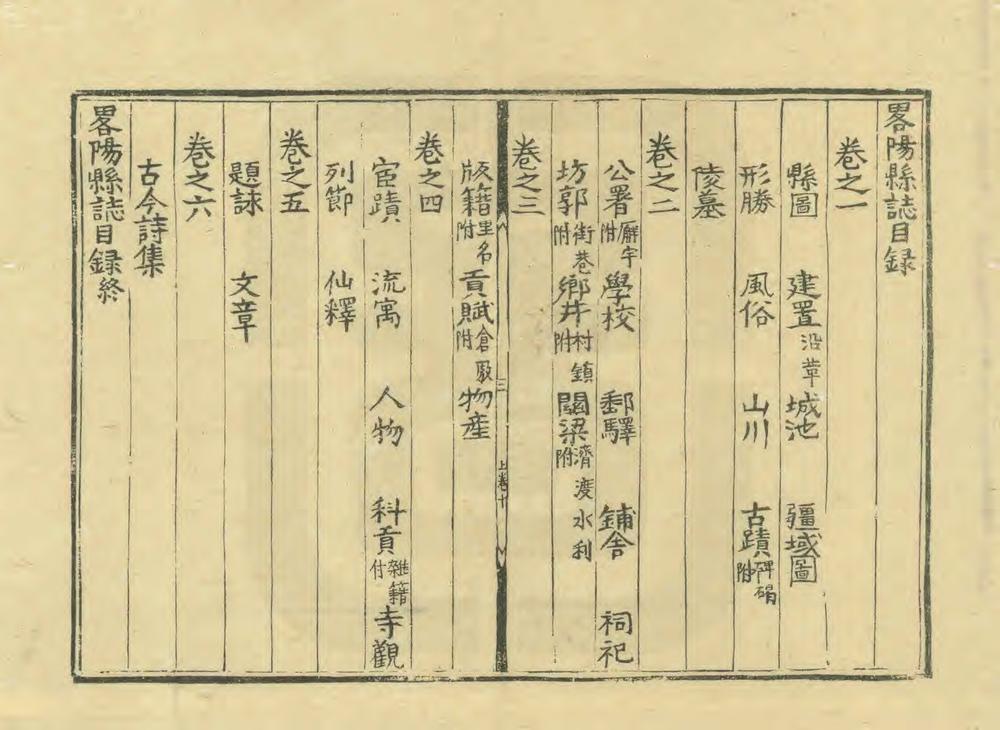 畧陽縣誌目録
卷之一
縣圖 建置沿革 城池 疆域圖
形勝 風俗 山川 古蹟碑碣附
陵墓
卷之二
公署廨宇附 學校 郵驛 鋪舍 祠祀
坊郭街巷附 鄉井村鎮附 關梁濟渡水利附
卷之三
三
上卷十
版籍里名附 貢賦倉厫附 物産
卷之四
宦蹟 流寓 人物 科貢雜籍付 寺觀
列節 仙釋
卷之五
題詠 文章
卷之六
古今詩集
畧陽縣誌目録終